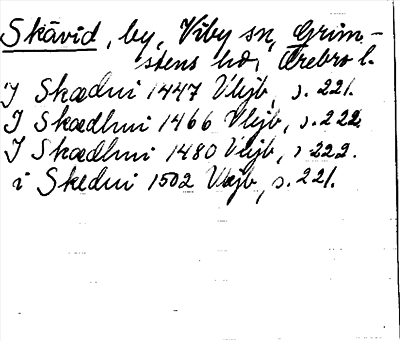 Skåvid, by, Viby sn, Grim-
stens hd, Örebro l.
I Skædui 1447 Vljb, s. 221.
I Skædhui 1466 Vljb, s. 222.
I Skædhui 1480 Vljb, s 222.
i Skedui 1502 Vljb, s. 221.